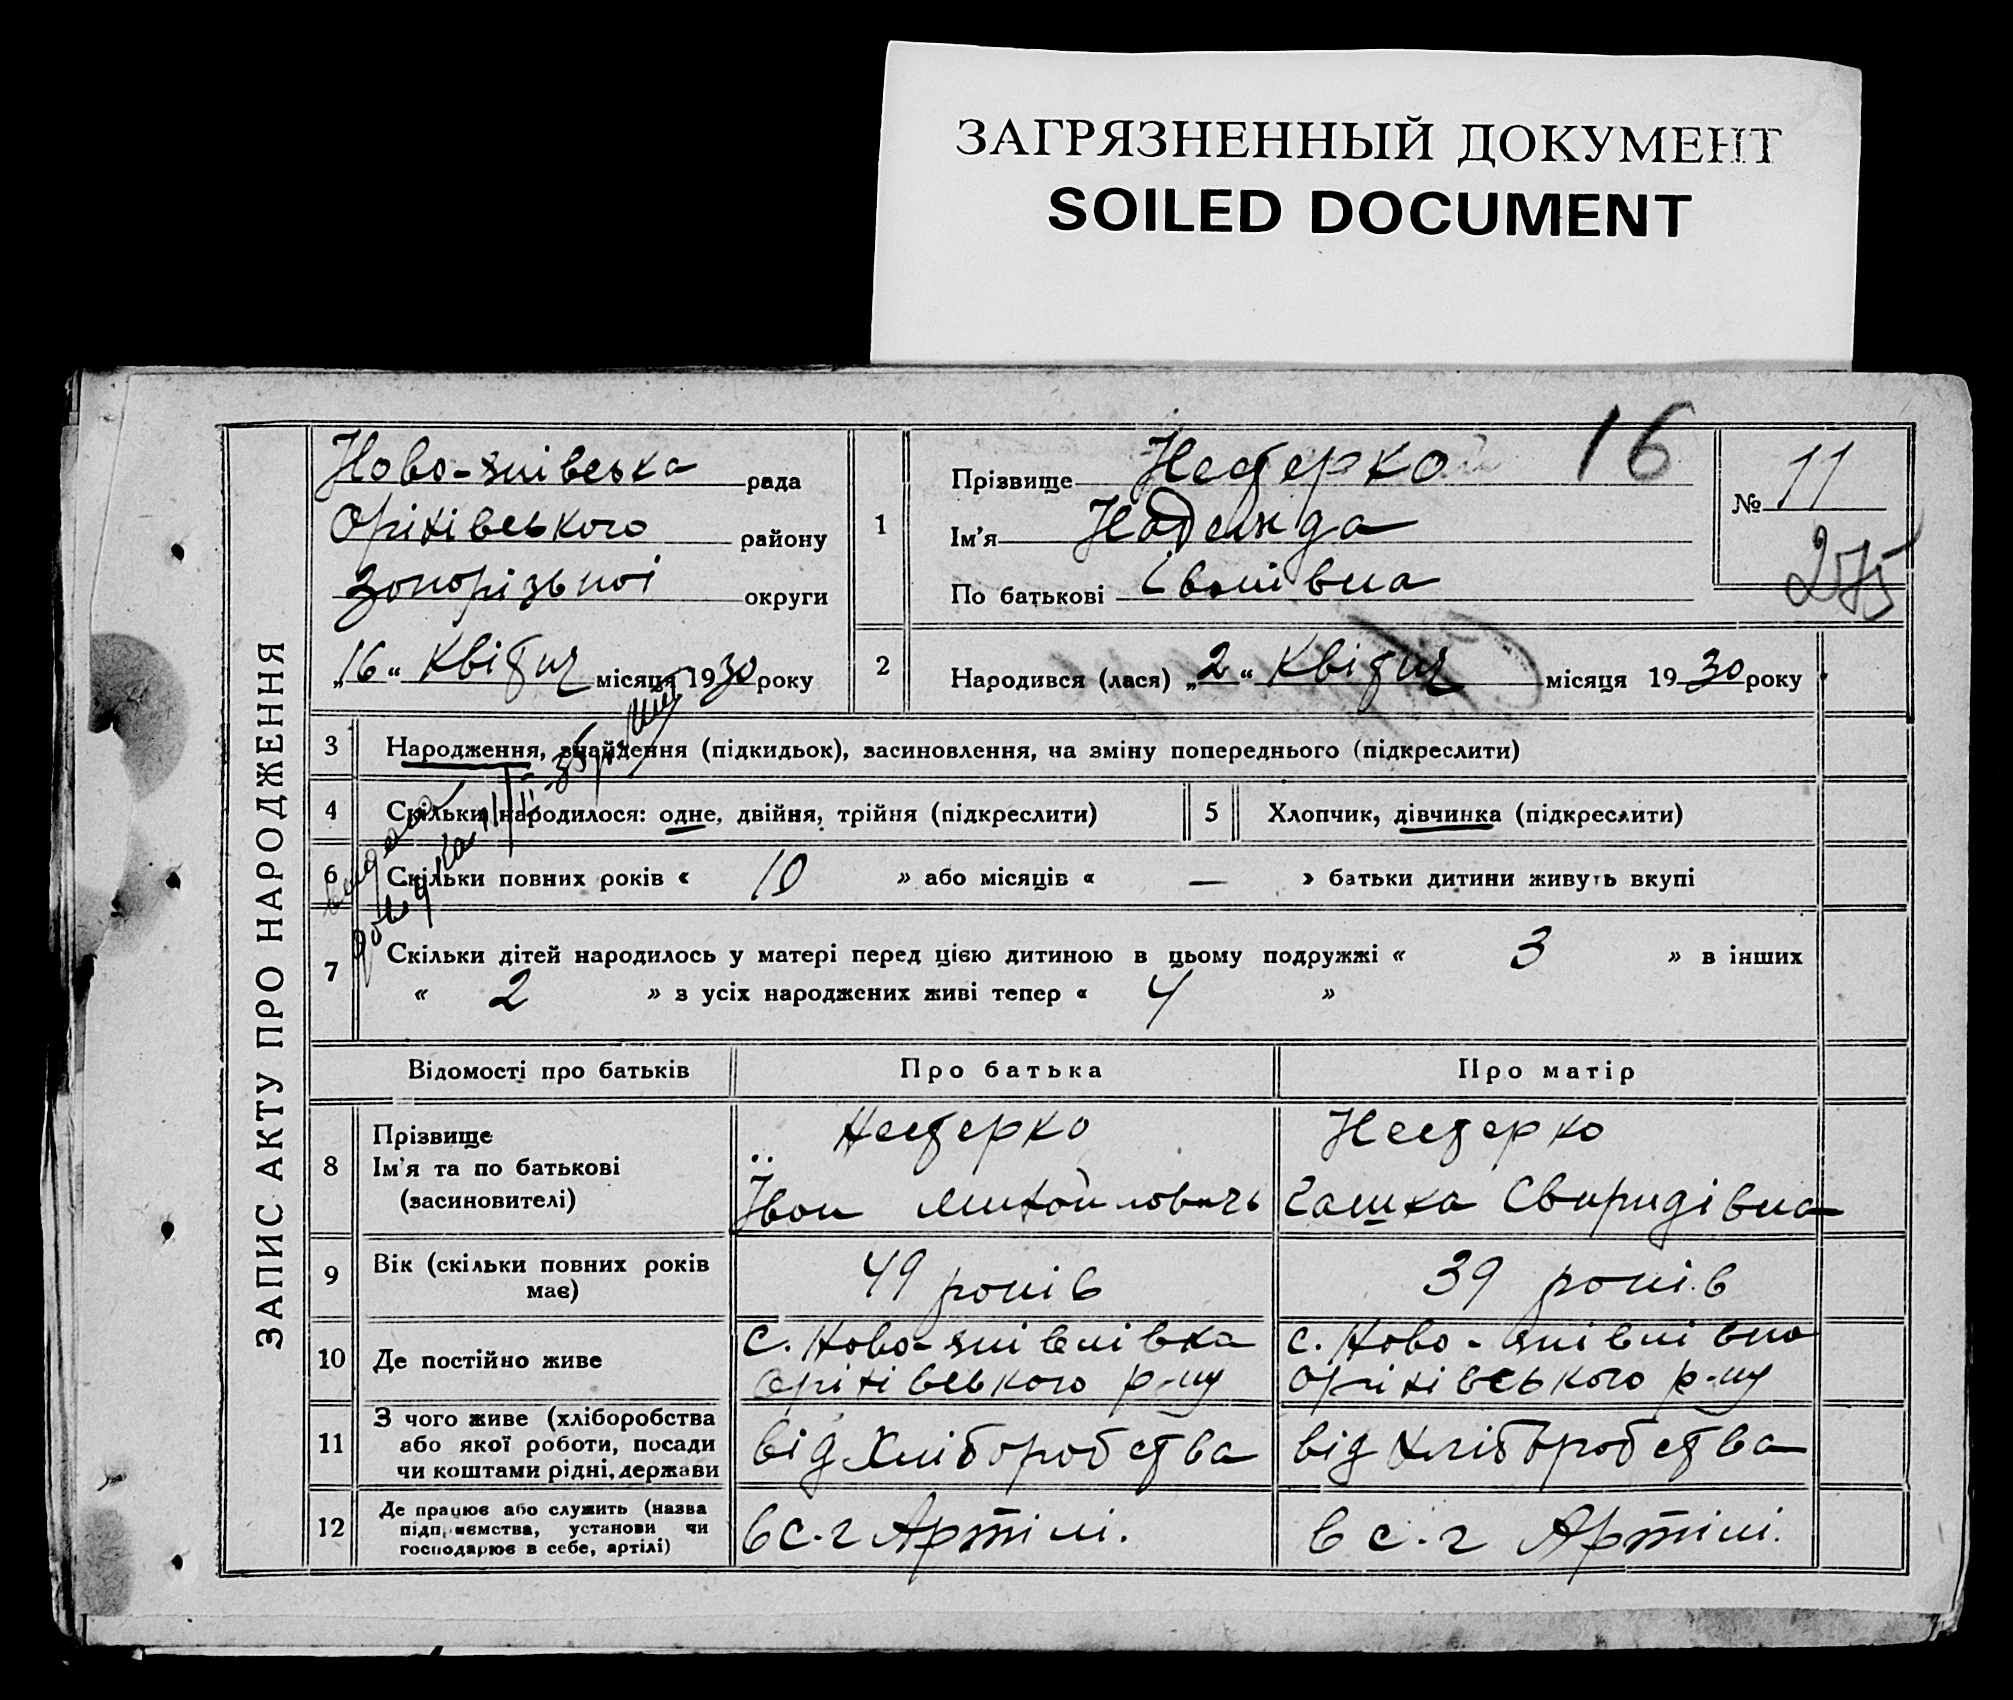 ЗАГРЯЗНЕННЫЙ ДОКУМЕНТ
SOILED DOCUMENT
ЗАПИС АКТУ ПРО НАРОДЖЕННЯ
рада
Оріхівського району
округи
„16“ Квітня місяця 1930 року
16
1 Прізвище Нестерко
Ім'я Надежда
По батькові Іванівна
№ 11
275
2 Народився (лася) „2“ Квітня місяця 1930 року
3 Народження, знайдення (підкидьок), засиновлення, на зміну попереднього (підкреслити)
4 Скільки народилося: одне, двійня, трійня (підкреслити)
5 Хлопчик, дівчинка (підкреслити)
6 Скільки повних років « 10 » або місяців « — » батьки дитини живуть вкупі
7 Скільки дітей народилось у матері перед цією дитиною в цьому подружжі « 3 » в інших
« 2 » з усіх народжених живі тепер « 4 »
Відомості про батьків Про батька Про матір
8 Прізвище
Ім'я та по батькові
(засиновителі)
Нестерко
Іван Михайловичь
Нестерко
Свиридівна
9 Вік (скільки повних років
має)
49 років
39 років
10 Де постійно живе
Оріхівського р-ну
Оріхівського р-ну
11 З чого живе (хліборобства
або якої роботи, посади
чи коштами рідні, держави
від Хліборобства
від Хліборобства
12 Де працює або служить (назва
підприємства, установи чи
господарює в себе, артілі)
в с.-г Артілі.
в с.-г Артілі.